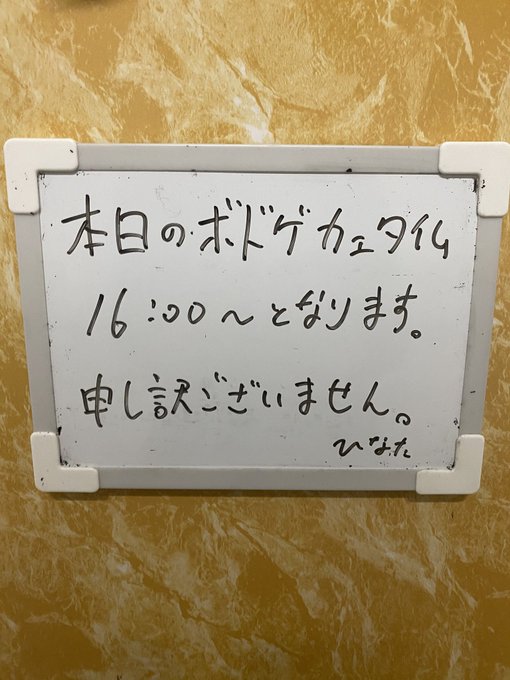 本日のボドゲカェタイム
16:00～となります。
申し訳ございません。
ひなた